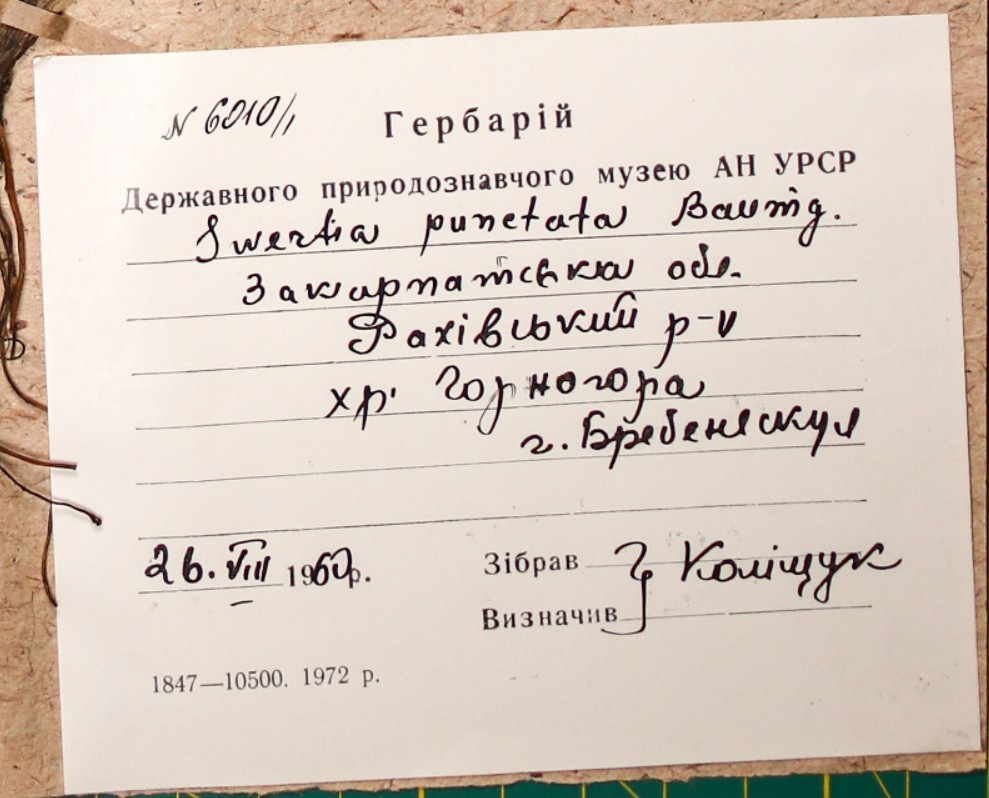 N 6010/1
Гербарій
Державного природознавчого музею АН УРСР
Swertia punctata Baumg.
Закарпатська обл.
Рахівський р-н
хр. Чорногора
г. Бребенескул
26. VIII 1960р.
Зібрав
Коліщук
Визначив
1847—10500. 1972 р.